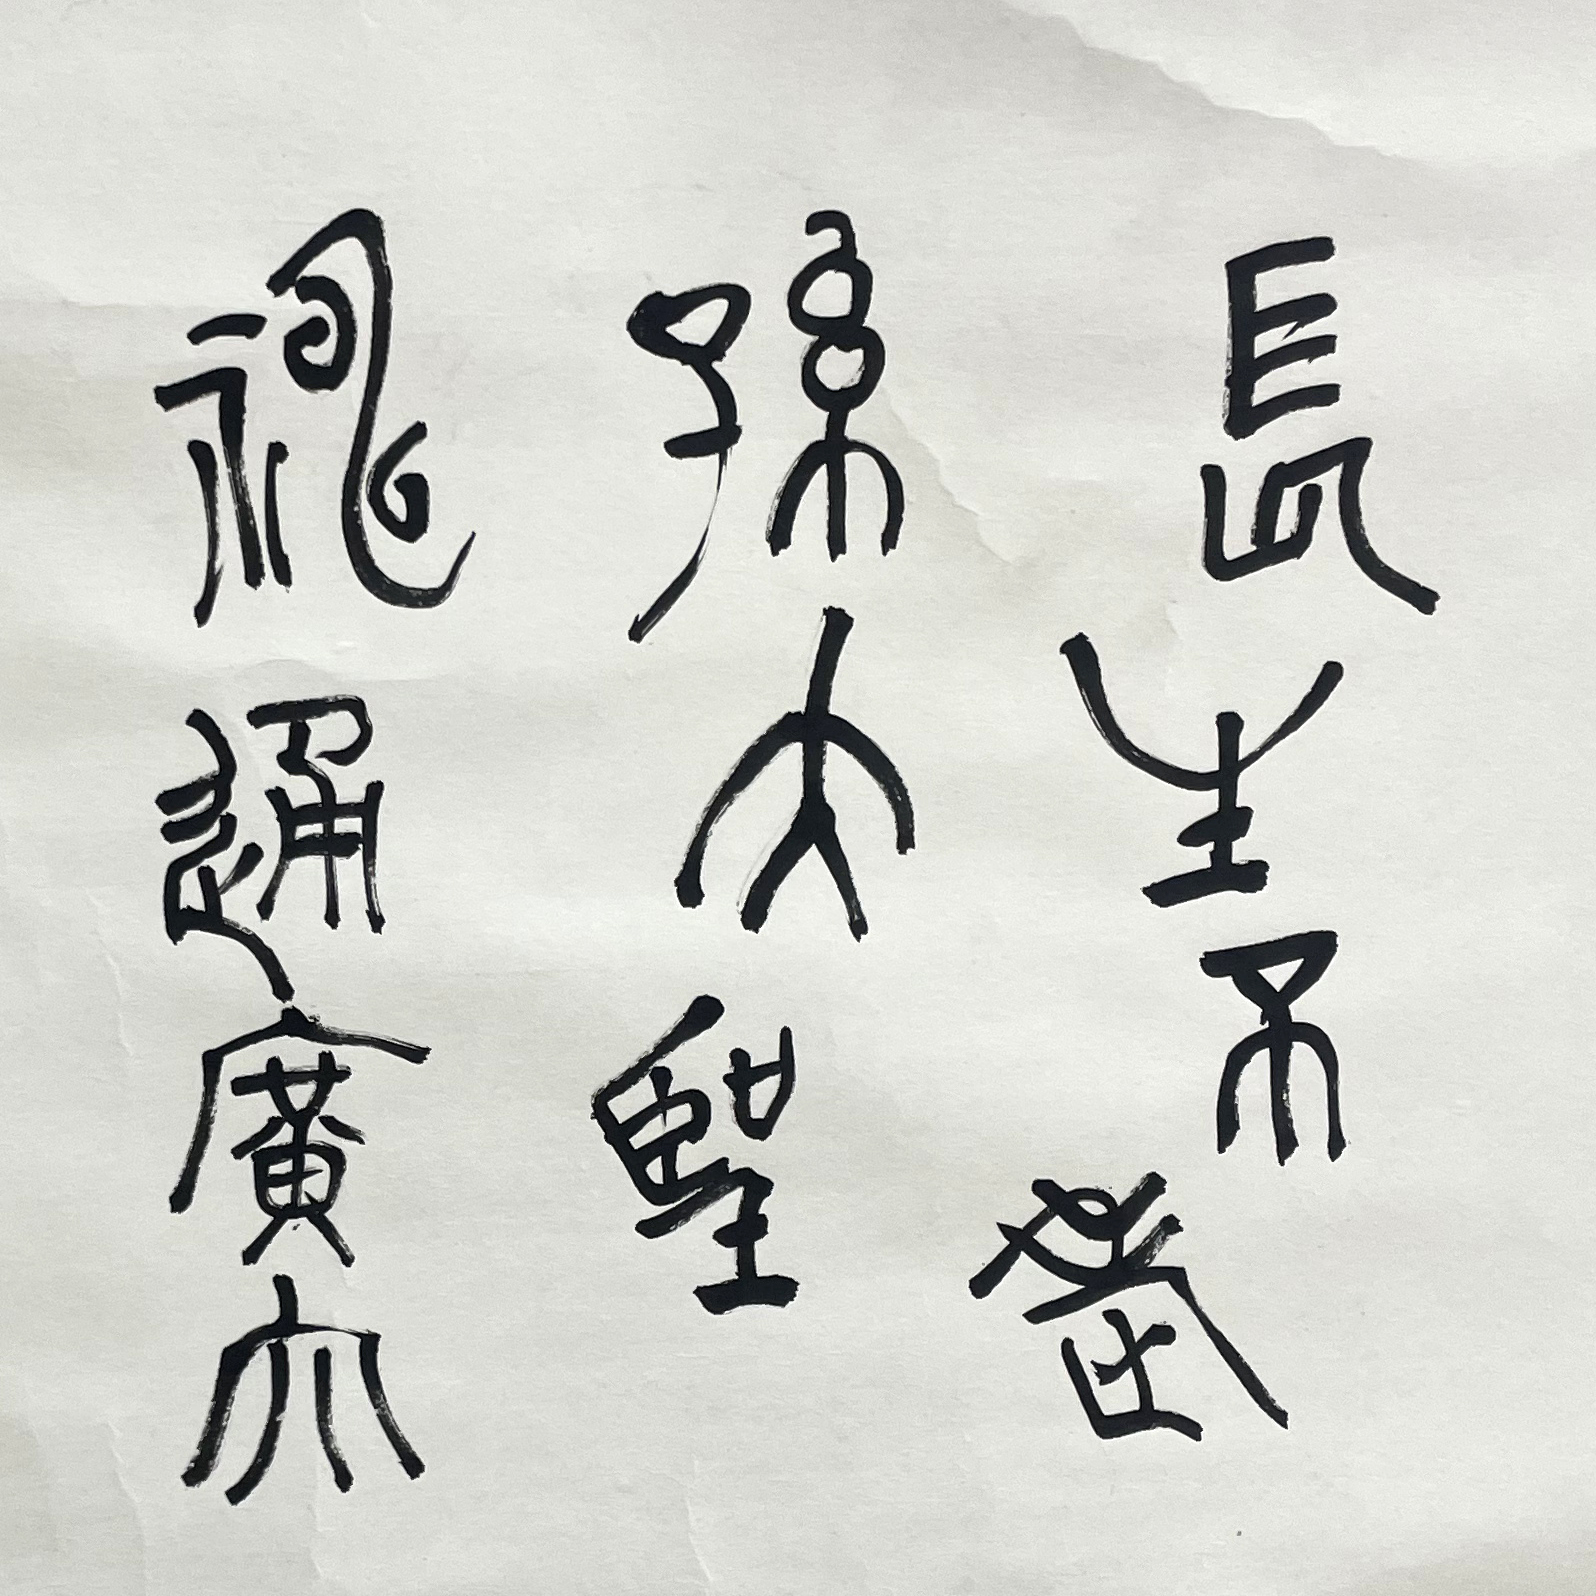 長生不老
孫大聖
神通廣大